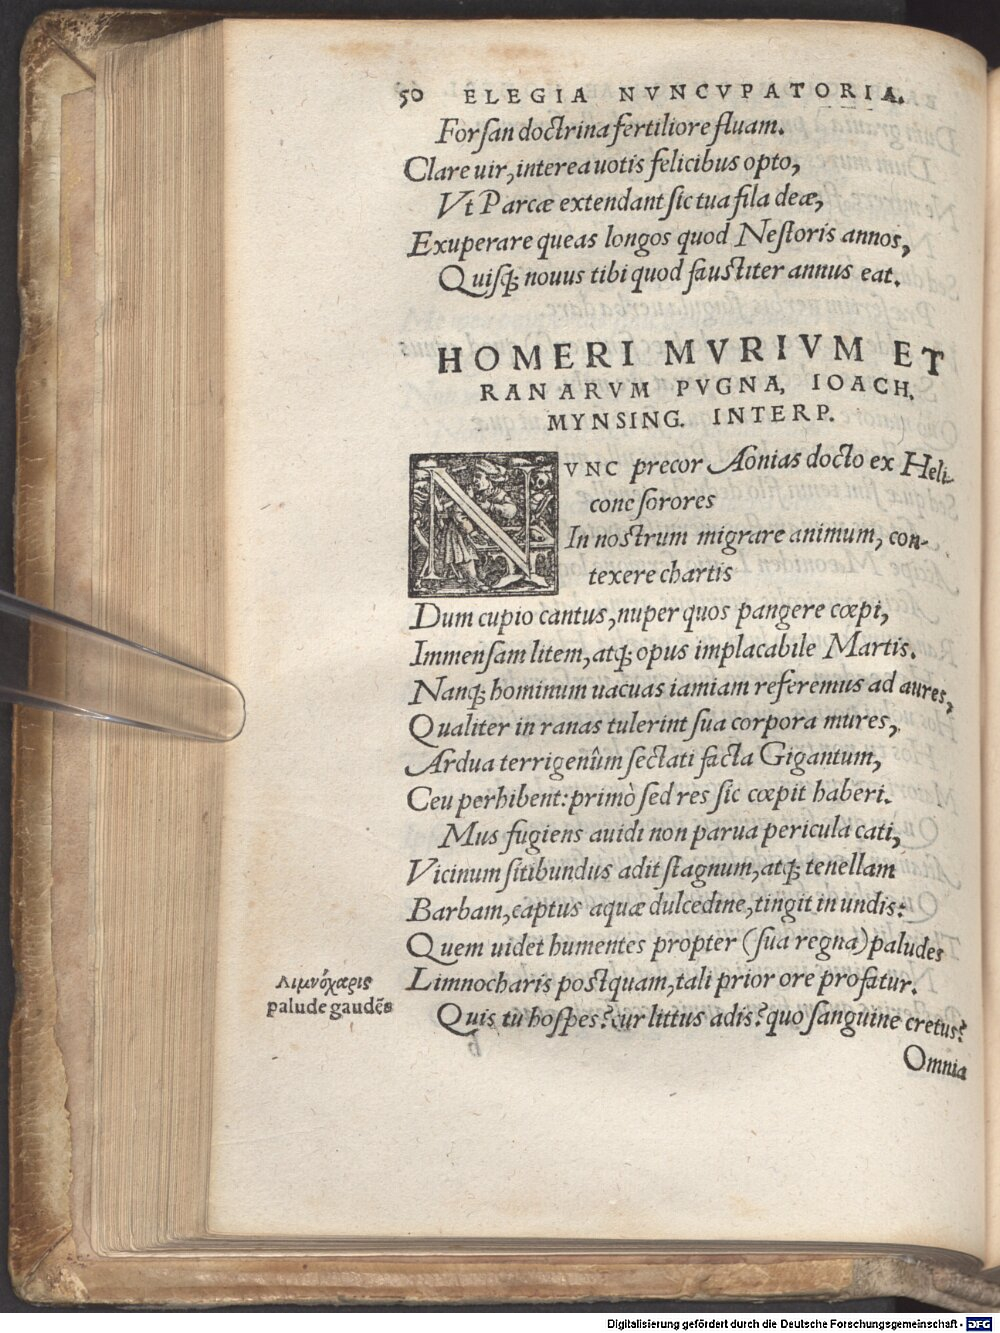 50 ELEGIA NVNCVPATORIA.
Forsan doctrina fertiliore fluam.
Clare uir, interea uotis felicibus opto,
Vt Parcæ extendant sic tua fila deæ,
Exuperare queas longos quod Nestoris annos,
Quisq; nouus tibi quod faustiter annus eat.
HOMERI MVRIVM ET
RANARVM PVGNA, IOACH.
MYNSING. INTERP.
NVNC precor Aonias docto ex Heli-
cone sorores
In nostrum migrare animum, con-
texere chartis
Dum cupio cantus, nuper quos pangere cœpi,
Immensam litem, atq; opus implacabile Martis.
Nanq; hominum uacuas iamiam referemus ad aures,
Qualiter in ranas tulerint sua corpora mures,
Ardua terrigenûm sectati facta Gigantum,
Ceu perhibent: primò sed res sic cœpit haberi.
Mus fugiens auidi non parua pericula cati,
Vicinum sitibundus adit stagnum, atq; tenellam
Barbam, captus aquæ dulcedine, tingit in undis:
Quem uidet humentes propter (sua regna) paludes
Λιμνόχαρις
palude gaudẽs
Limnocharis postquam, tali prior ore profatur.
Quis tu hospes? cur littus adis? quo sanguine cretus?
Omnia
Digitalisierung gefördert durch die Deutsche Forschungsgemeinschaft - DFG